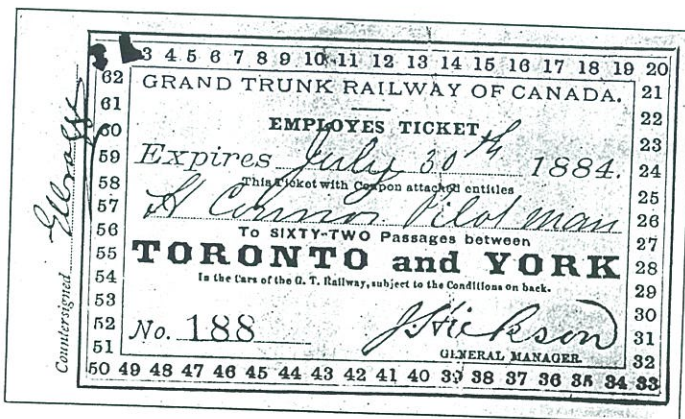 3 4 5 6 7 8 9 10 11 12 13 14 15 16 17 18 19 20
21 22 23 24 25 26 27 28 29 30 31 32
50 49 48 47 46 45 44 43 42 41 40 39 38 37 36 35 34 33
62 61 60 59 58 57 56 55 54 53 52 51
GRAND TRUNK RAILWAY OF CANADA.
EMPLOYES TICKET
Expires July 30th 1884.
This Ticket with Coupon attached entitles
H Connor Pilot man
To SIXTY-TWO Passages between
TORONTO and YORK
In the Cars of the G. T. Railway, subject to the Conditions on back.
No. 188
J Hickson
GENERAL MANAGER
Countersigned